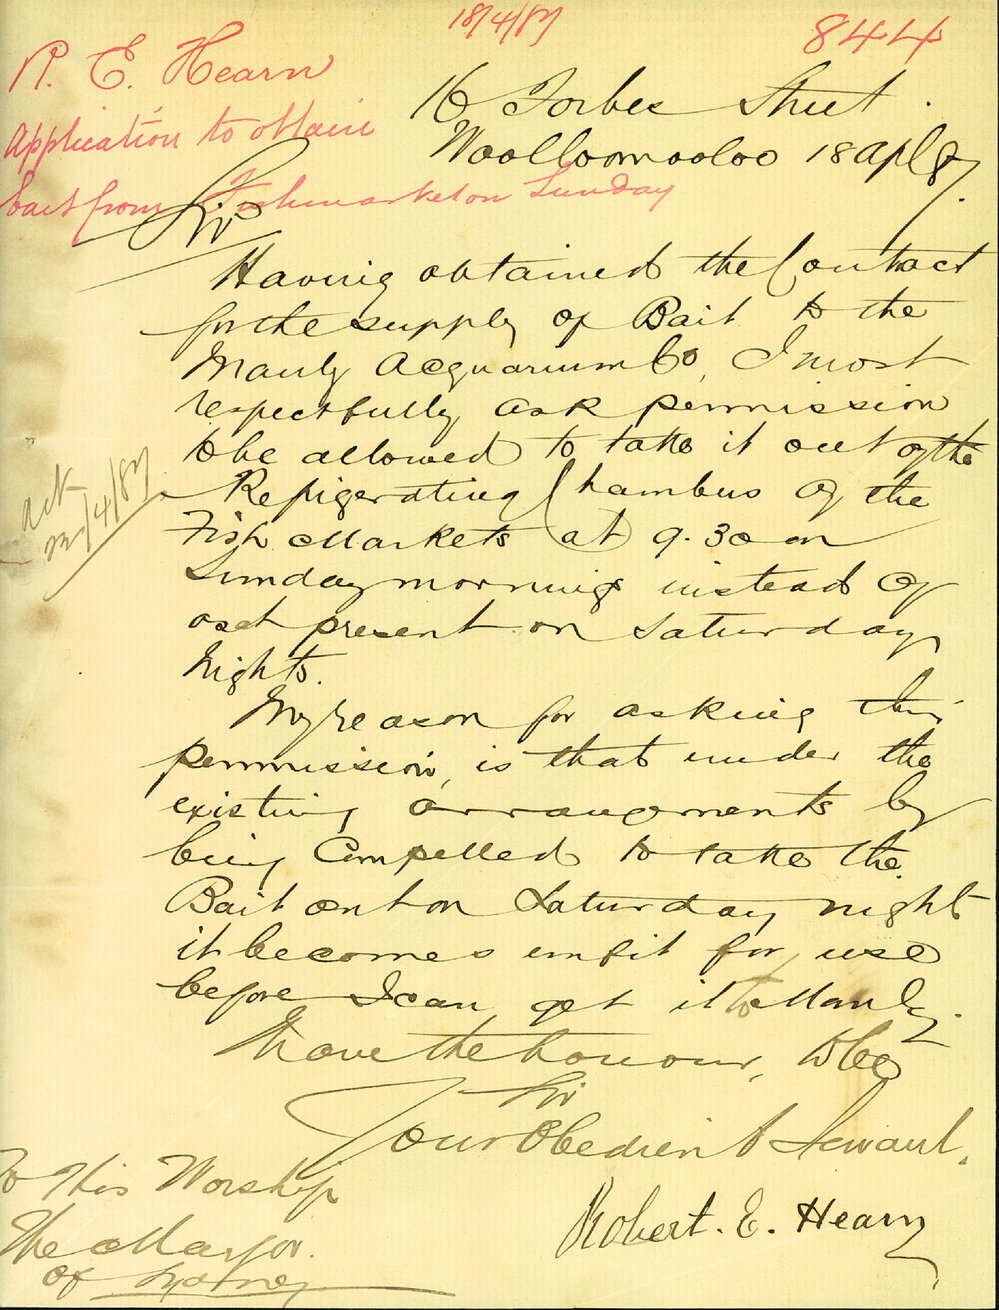 18/4/87
844
R. E. Hearn
Application to obtain
bait from Fishmarket on Sunday
16 Forbes Street
Woolloomooloo 18 Apl 87
Sir
Having obtained the Contract
for the supply of Bait to the
Manly Acquarium Co, I most
respectfully ask permission
to be allowed to take it out of the
Refigerating Chambers of the
Fish Markets at 9.30 on
Sunday mornings instead of
as at present on Saturday
Nights.
My reason for asking this
permission, is that under the
existing arrangements by
being Compelled to take the
Bait out on Saturday night
it becomes unfit for use
before I can get it to Manly.
I have the honour, to be
Sir
Your Obedient Servant.
Robert. E. Hearn
To His Worship
The Mayor.
of Sydney
/4/87